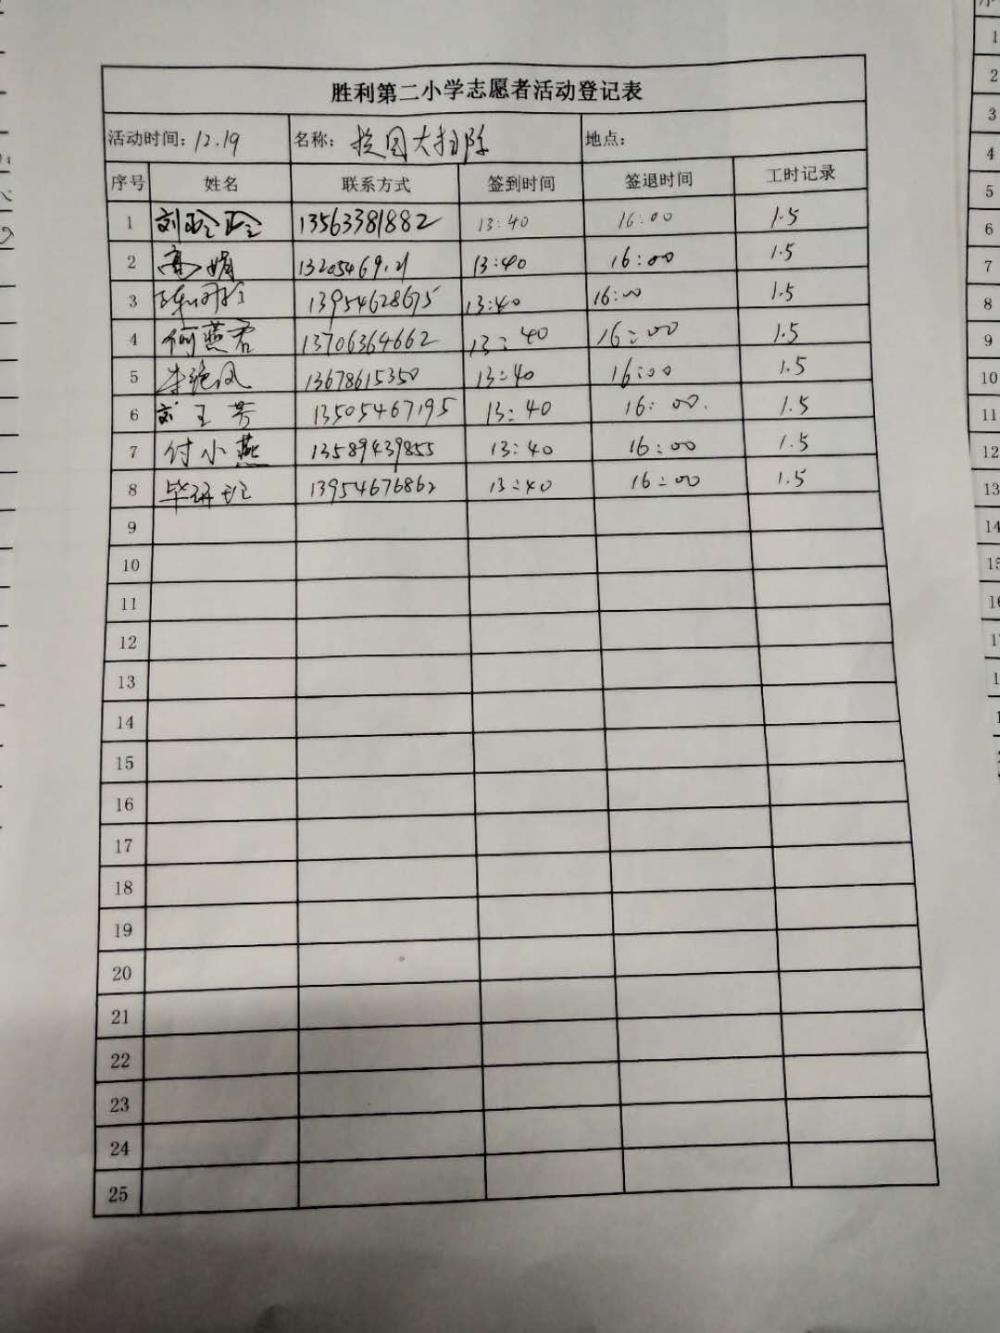 胜利第二小学志愿者活动登记表
活动时间: 12.19 名称: 校园大扫除 地点:
序号 姓名 联系方式 签到时间 签退时间 工时记录
1 刘玲玲 13563381882 13:40 16:00 1.5
2 高娟 13:40 16:00 1.5
3 13954628675 13:40 16:00 1.5
4 何燕君 13706364662 13:40 16:00 1.5
5 13678615350 13:40 16:00 1.5
6 刘玉芳 13505467195 13:40 16:00. 1.5
7 付小燕 13589439855 13:40 16:00 1.5
8 13954676862 13:40 16:00 1.5
9
10
11
12
13
14
15
16
17
18
19
20
21
22
23
24
25